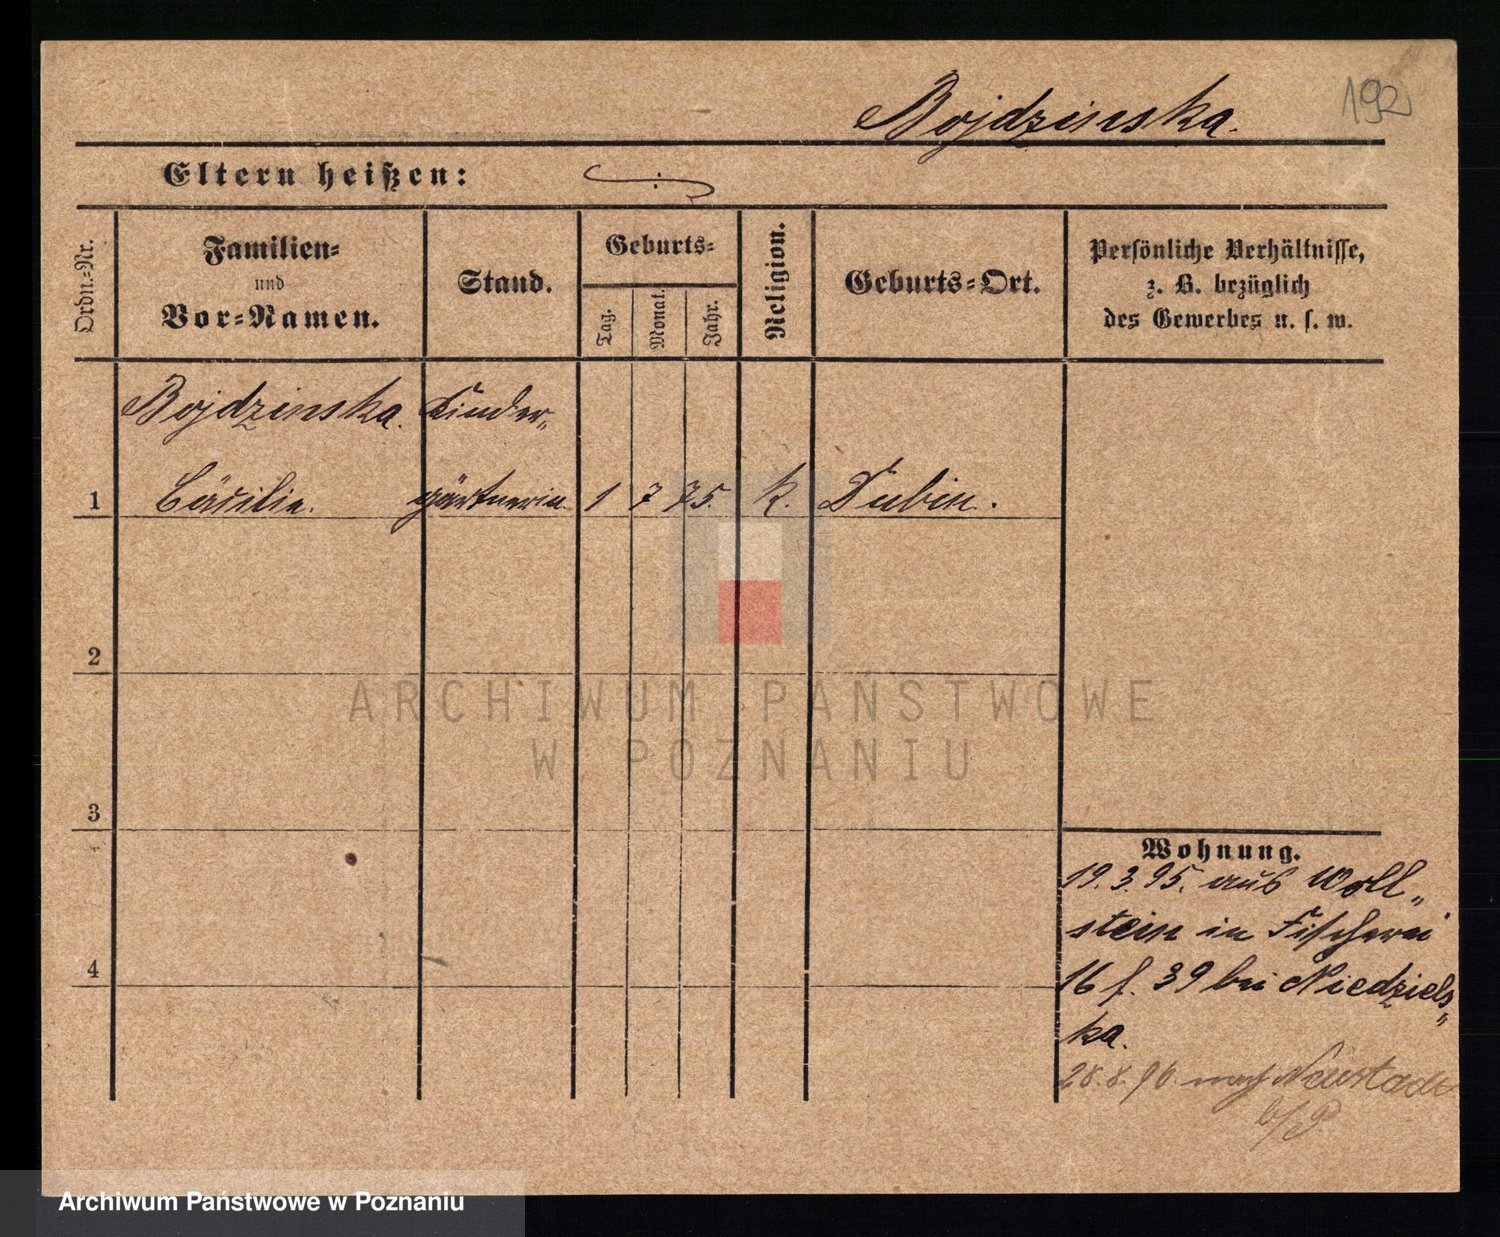 192
Bojdzinska.
Eltern heißen:
Ordn.-Nr.
Familien-
und
Vor-Namen.
Stand.
Geburts-
Tag.
Monat.
Jahr.
Religion.
Geburts-Ort.
Persönliche Verhältnisse,
z. B. bezüglich
des Gewerbes u. s. w.
Bojdzinska. Kinder„
1 Cäcilie. gärtnerin. 1 7 75. k. Dubin.
2
3
4
Wohnung.
19.3.95. aus Woll„
stein in Fischerei
16 f. 39 bei Niedziels„
ka.
28.8.96. nach Neustadt
b/P.
ARCHIWUM PAŃSTWOWE
W POZNANIU
Archiwum Państwowe w Poznaniu